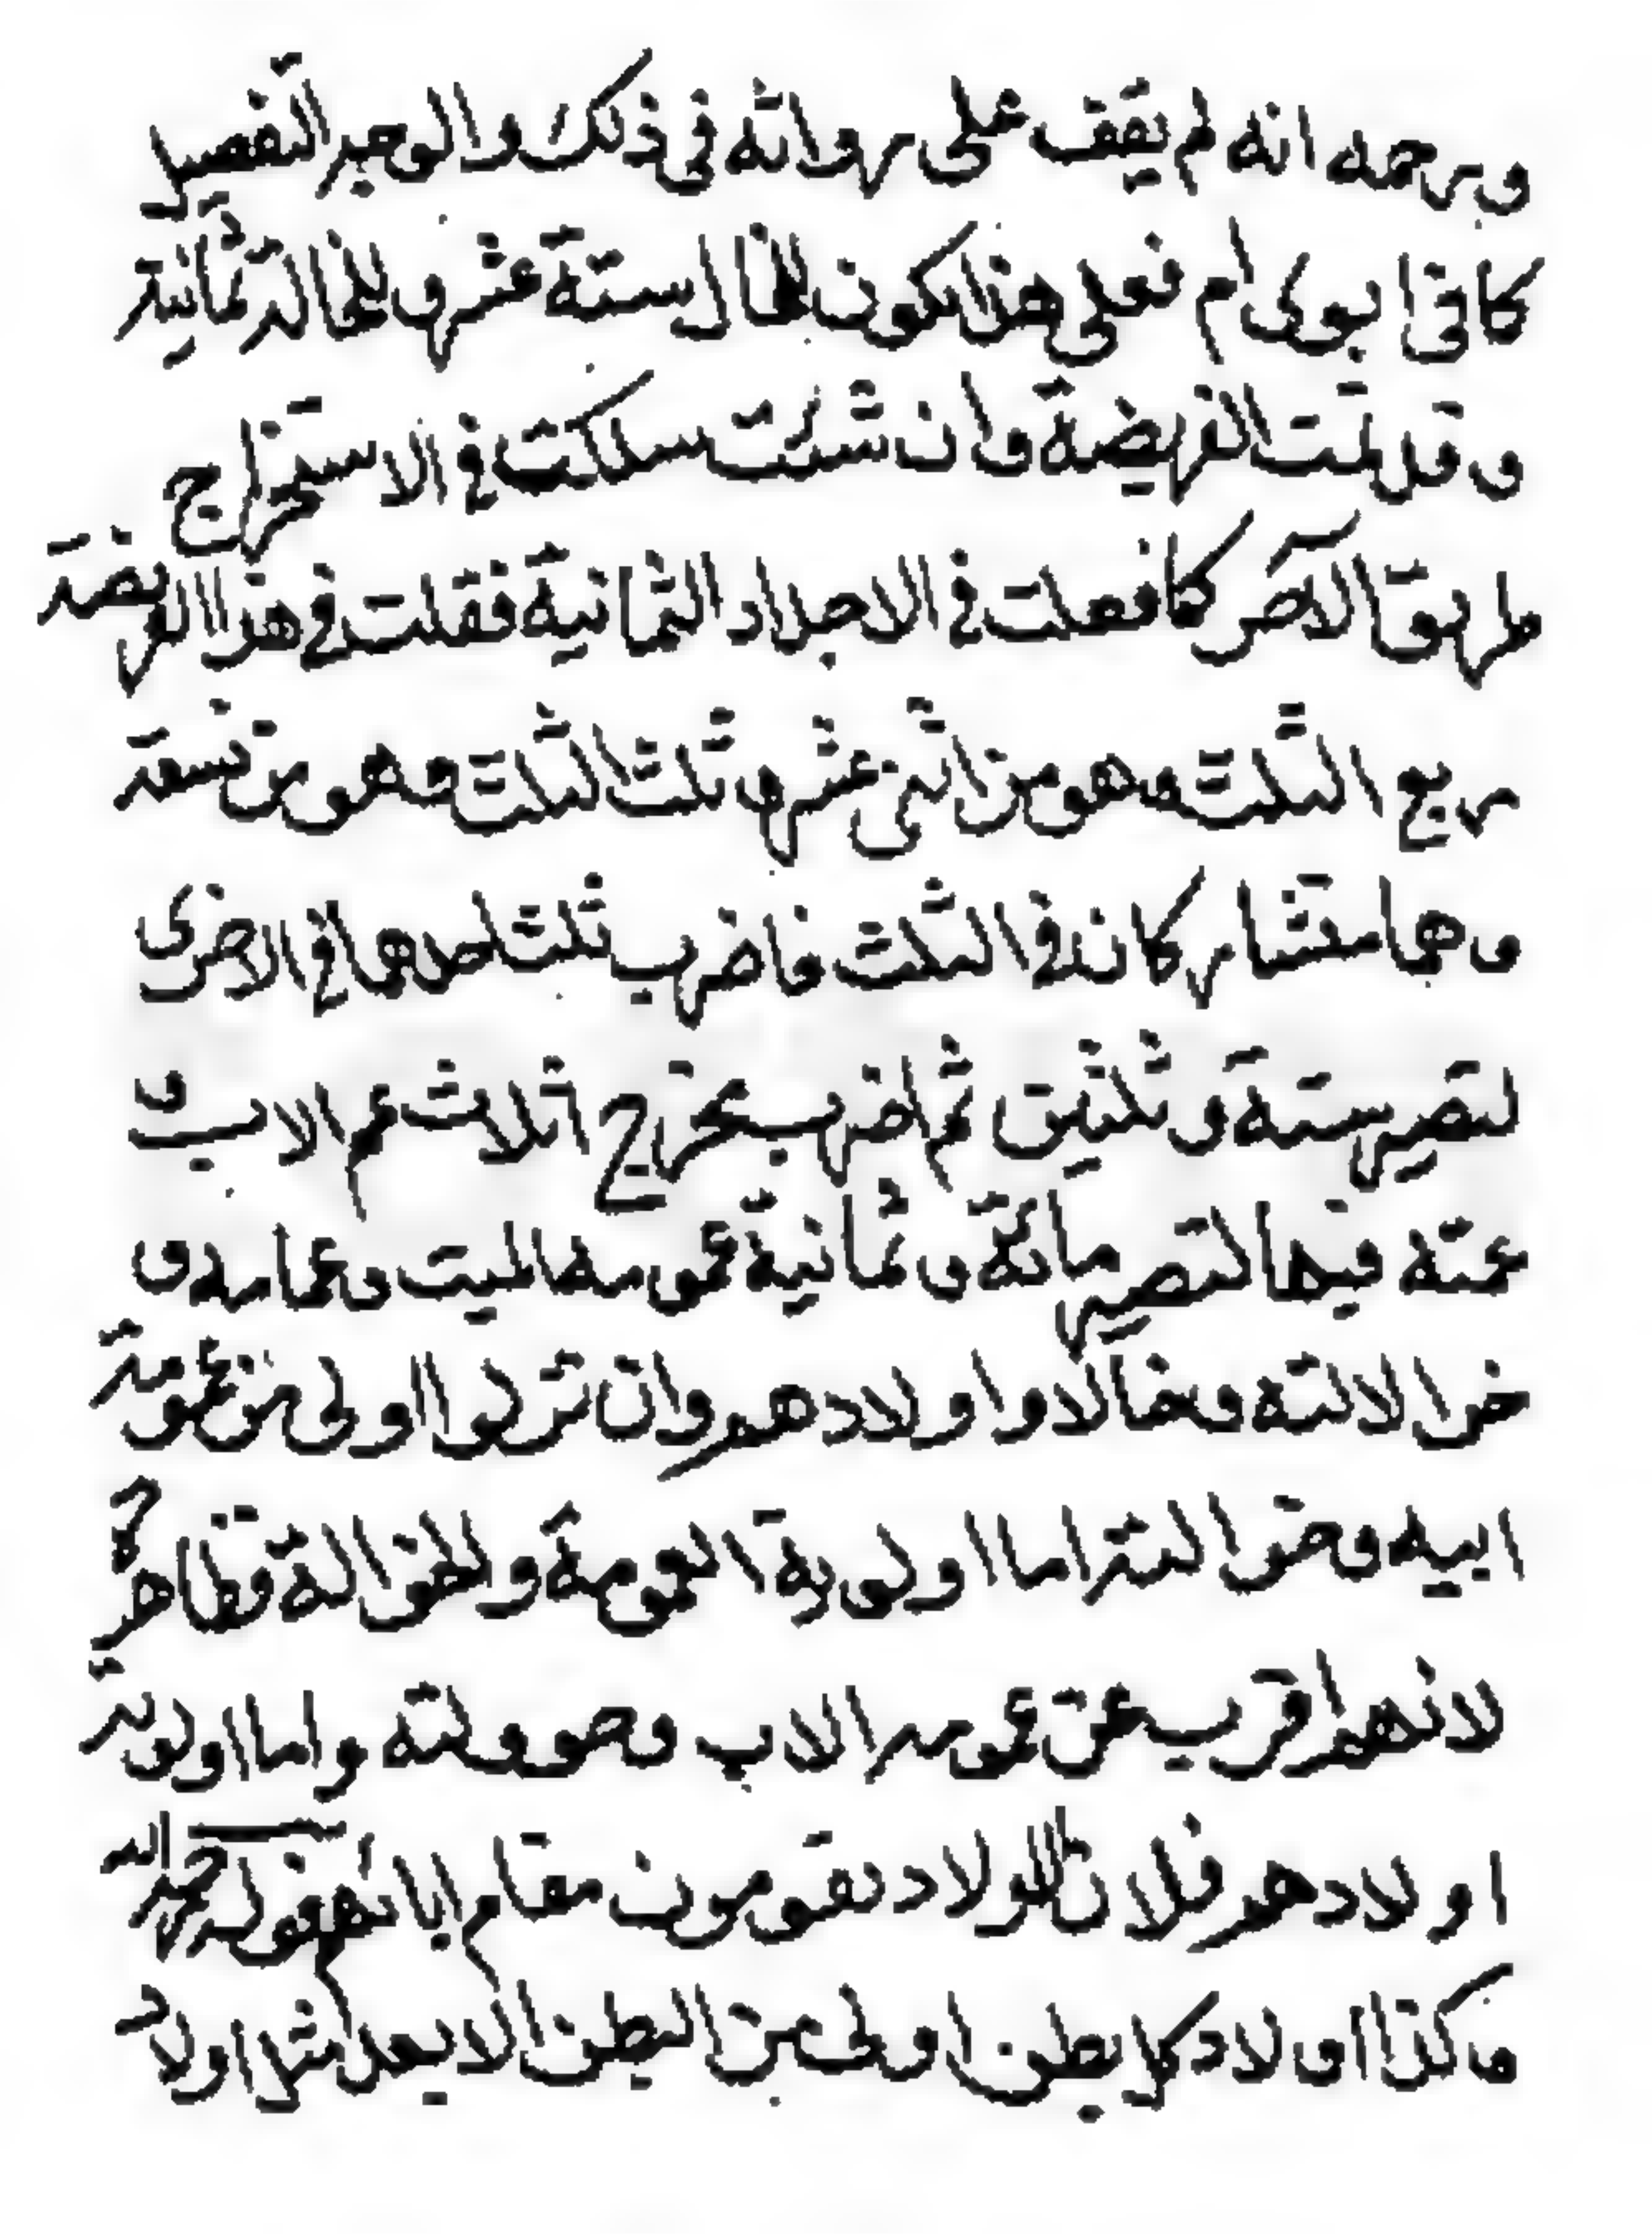 ورحمه انه لم يقف على رواته في ذلك والوجه التفصيل
كما في ابوى ام فعلى هذا يكون للخال ستة عشر وللخالة ثمانية
وقد تمت الفريضة وان شئت سلكت في الاستخراج
طريقا اخصر كما فعلت في الاجداد الثمانية فقلت في هذا الفريضة
ربع الثلث وهو من اثنى عشر وثلث الثلث وهو من تسعة
وهما متشاركان في الثلث فاضرب ثلث احدهما في الاخرى
لتصير ستة وثلثين ثم اضرب مخرج اثلاث عم الاب و
عمته فيها لتصير مائة وثمانية عمومة الميت وعماته و
خالاته وخالا واولادهم وان نزلوا اولى من عمومة
ابيه وخوالته اما اولوية العمومة والخوالة فظاهر
لانهم اقرب عن عمومة الاب وخوولته واما اولوية
اولادهم فلان الاولاد يقومون مقام ابائهم
وكذا اولاد كل بطن اولى من البطن الابعد مثلا اولاد